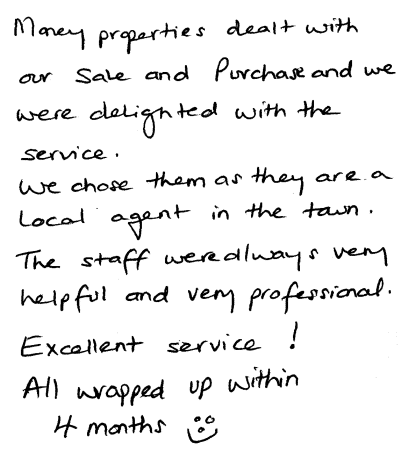 Money properties dealt with
our Sale and Purchase and we
were delighted with the
service.
We chose them as they are a
Local agent in the town.
The staff were always very
helpful and very professional.
Excellent service !
All wrapped up within
4 months